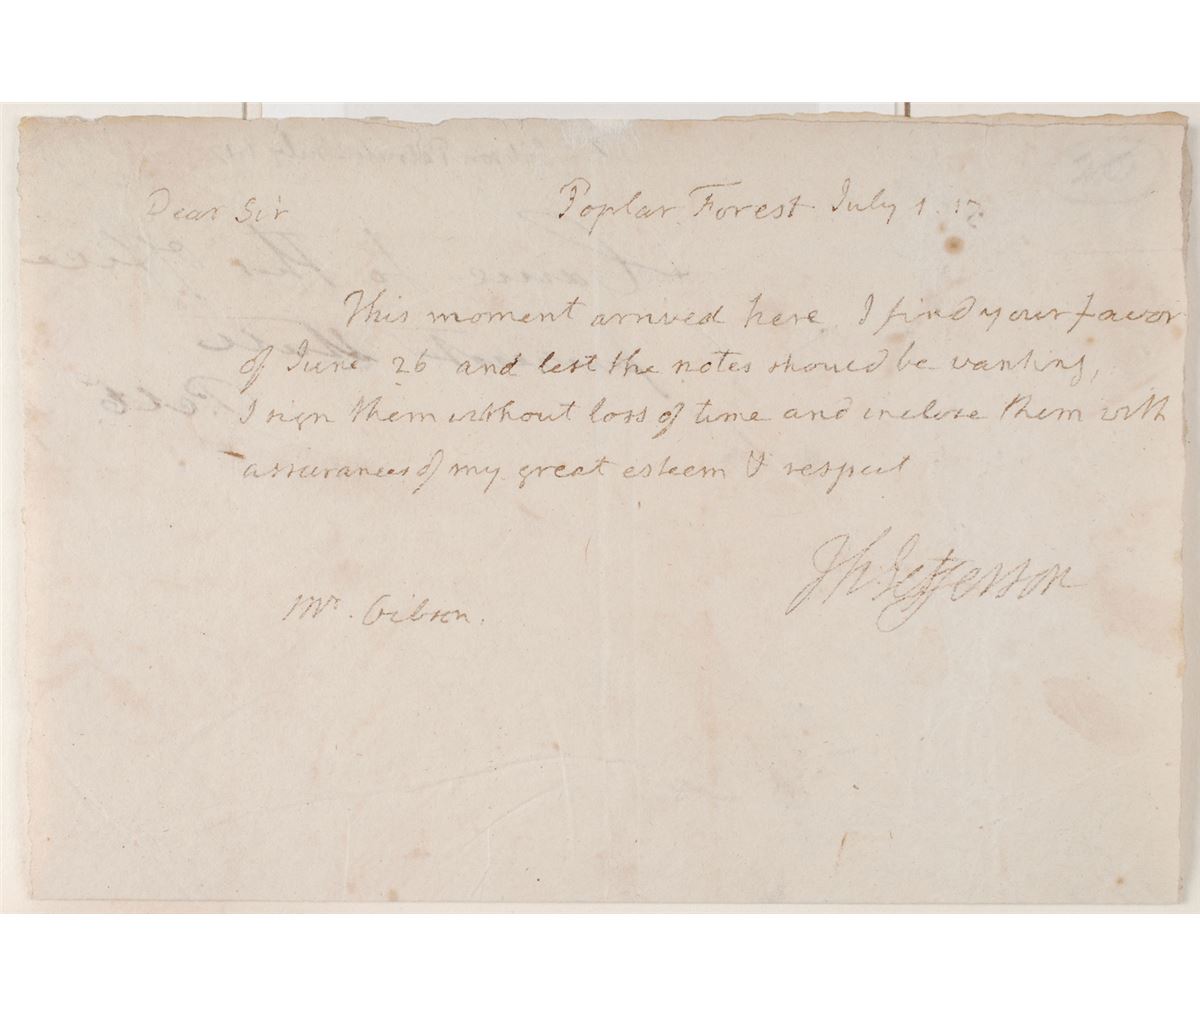 Dear Sir Poplar Forest July 1. 17.
This moment arrived here I find your favor
of June 26 and lest the notes should be wanting,
I sign them without loss of time and inclose them with
assurances of my great esteem & respect
Th Jefferson
Mr. Gibson.